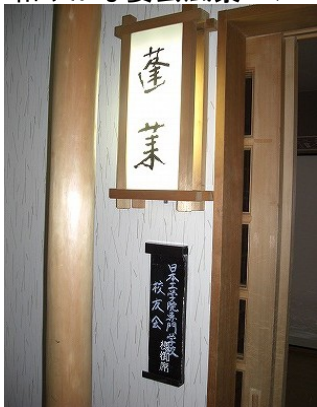 蓬莱
日本工学院専門学校
校友会 様御席